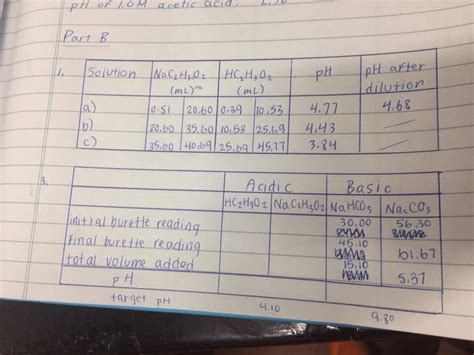 pH of 1.0M acetic acid: 2.38
Part B
1. Solution NaC₂H₃O₂ (mL) HC₂H₃O₂ (mL) pH pH after dilution
a) 0.51 20.60 0.39 10.53 4.77 4.68
b) 20.60 35.60 10.53 25.69 4.43
c) 35.60 40.69 25.69 45.17 3.84
3. Acidic Basic
HC₂H₃O₂ NaC₂H₃O₂ NaHCO₃ Na₂CO₃
initial burette reading 30.00 56.30
Final burette reading 45.10 61.67
total volume added 15.10 5.37
pH
target pH 4.10 9.80